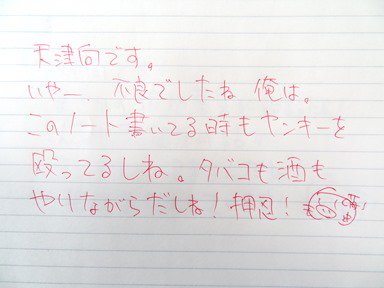 天津向です。
いやー、不良でしたね 俺は。
このノート書いてる時もヤンキーを
殴ってるしね。タバコも酒も
やりながらだしね！押忍！